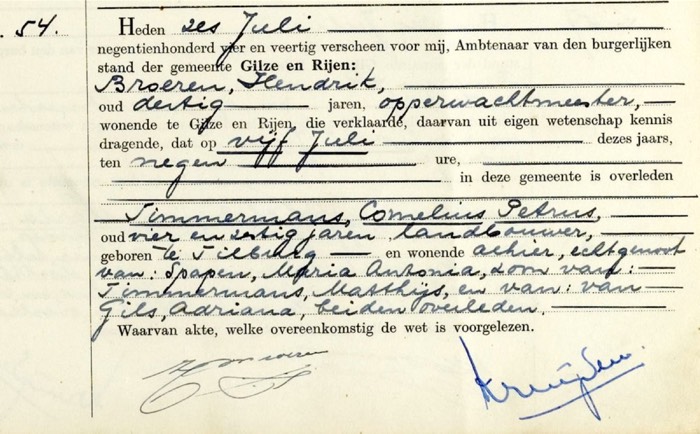 54.
Heden zes Juli
negentienhonderd vier en veertig verscheen voor mij, Ambtenaar van den burgerlijken
stand der gemeente Gilze en Rijen:
Broeren, Hendrik,
oud dertig jaren, opperwachtmeester,
wonende te Gilze en Rijen, die verklaarde, daarvan uit eigen wetenschap kennis
dragende, dat op vijf Juli dezes jaars,
ten negen ure,
in deze gemeente is overleden
Timmermans, Cornelius Petrus,
oud vier en zestig jaren, landbouwer,
geboren te Tilburg en wonende alhier, echtgenoot
van: Spapen, Maria Antonia, zoon van:
Timmermans, Matthijs, en van: van
Gils, Adriana, beiden overleden.
Waarvan akte, welke overeenkomstig de wet is voorgelezen.